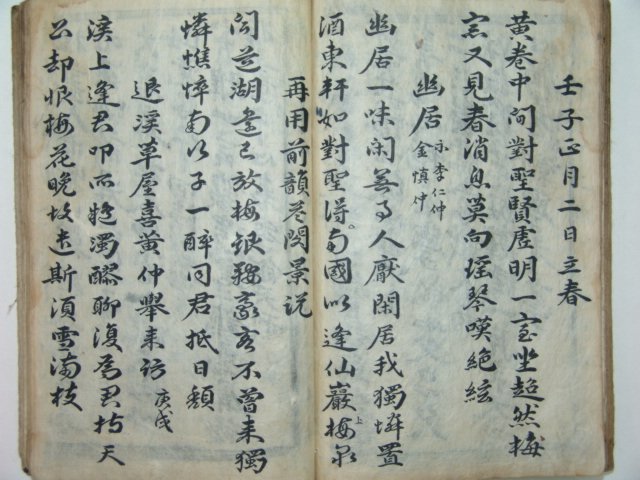 壬子正月二日立春
黃卷中間對聖賢虛明一室坐超然梅
窓又見春消息莫向瑤琴嘆絶絃
幽居 示李仁仲 金愼仲
幽居一味閑無事人厭閑居我獨憐置
酒東軒如對聖得南國以逢仙巖梅泉
再用前韻答閔景說
聞道湖邊已放梅銀鞍豪客不曾來獨
憐憔悴南行子一醉同君抵日頹
退溪草屋喜黃仲擧來訪 庚戌
溪上逢君叩所疑濁醪聊復爲君持天
公却恨梅花晚故遣斯須雪滿枝